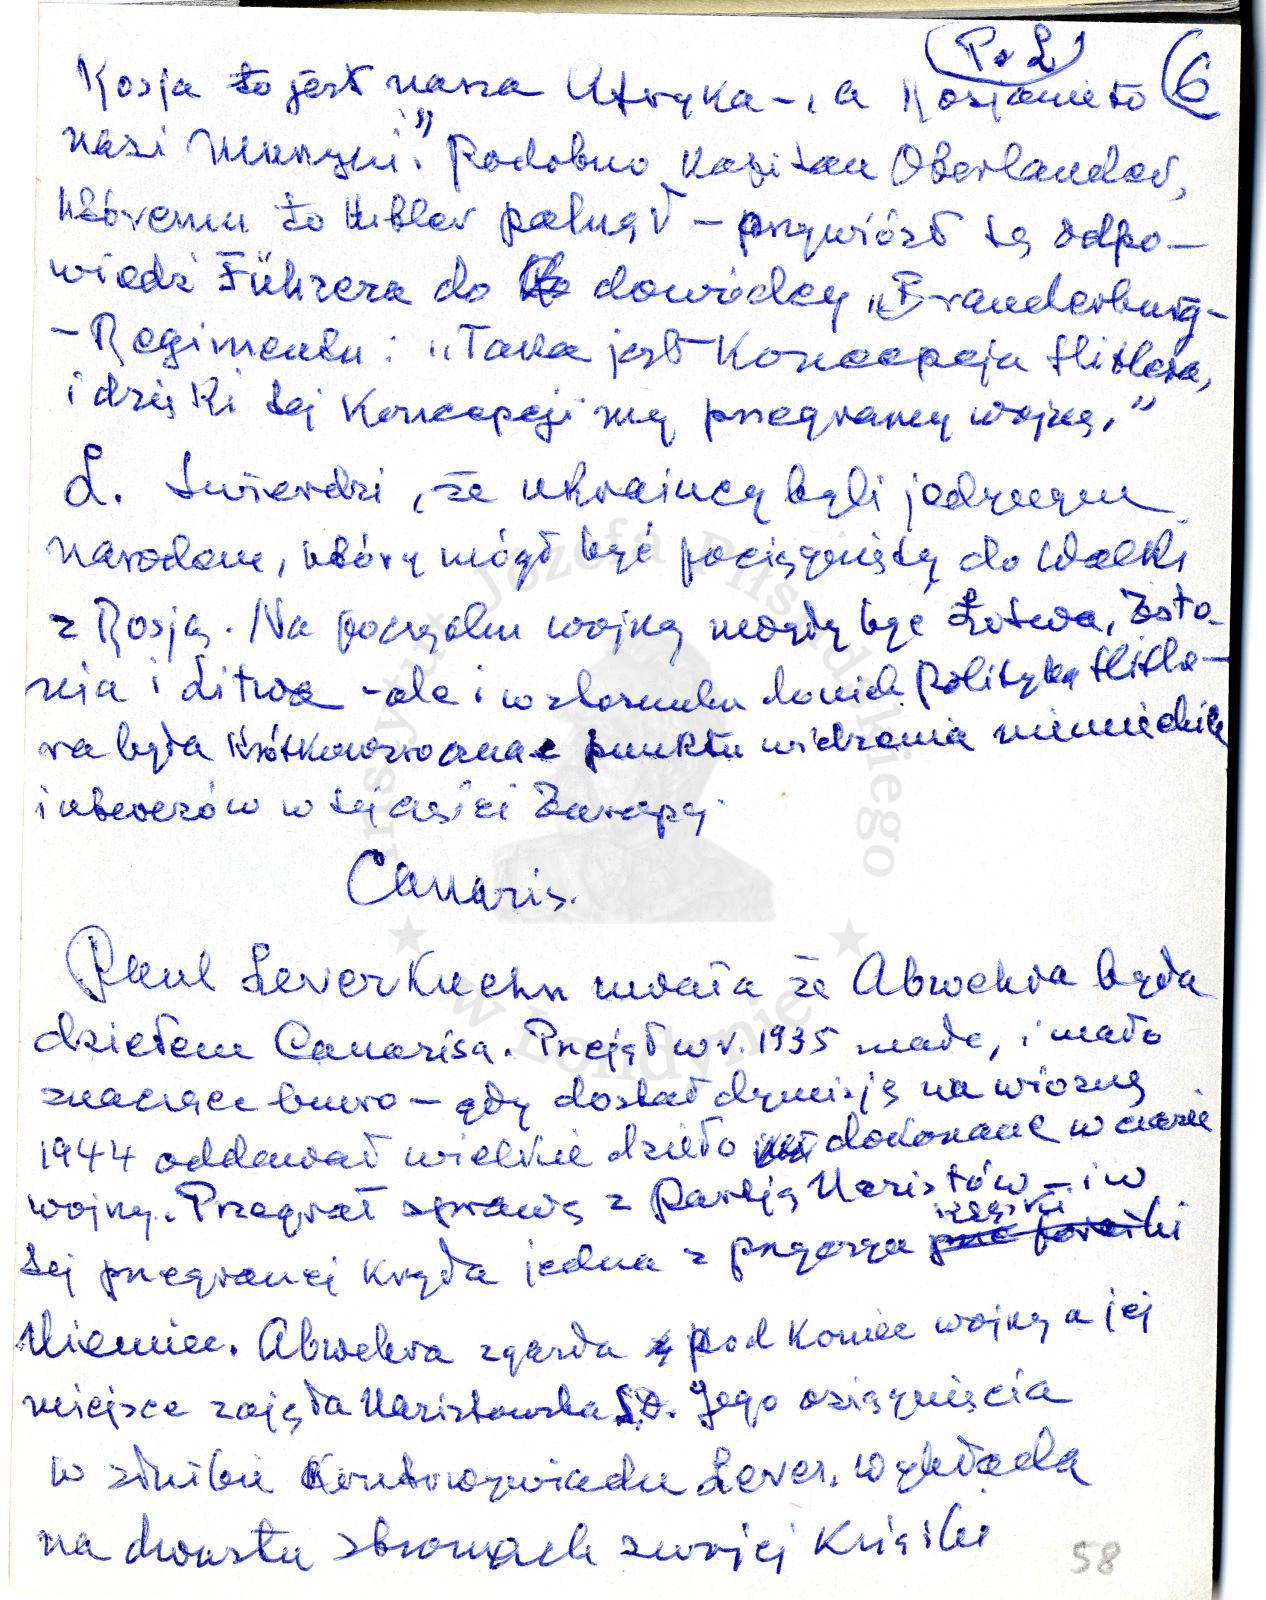 P. L. 6
Rosja to jest nasza Afryka -, a Rosjanie to
nasi Murzyni." Podobno kapitan Oberlander,
któremu to Hitler palnął - przywiózł tą odpo-
wiedź Führera do dowódcy „Branderburg-
- Regimentu: „Taka jest koncepcja Hitlera,
i dzięki tej koncepcji my przegramy wojnę."
L. twierdzi, że ukraińcy byli jedynym
narodem, który mógł być pociągnięty do walki
z Rosją. Na początku wojny mogły być Łotwa, Esto-
nia i Litwa - ale i w stosunku do nich polityka Hitle-
ra była krótkowzroczna z punktu widzenia niemieckich
interesów w tej części Europy.
Canaris.
Paul Leverkuehn uważa że Abwehra była
dziełem Canarisa. Przejął w r. 1935 małe, i mało
znaczące biuro - gdy dostał dymisję na wiosnę
1944 oddawał wielkie dzieło dokonane w czasie
wojny. Przegrał sprawę z Partją Nazistów - i w
tej przegranej kryła jedna z przyczyn klęski
Niemiec. Abwehra zgasła pod koniec wojny a jej
miejsce zajęła Nazistowska S.D. Jego osiągnięcia
w służbie Kontrwywiadu Lever. wykłada
na dwustu stronach swojej książki
58
Instytut Józefa Piłsudskiego
w Londynie